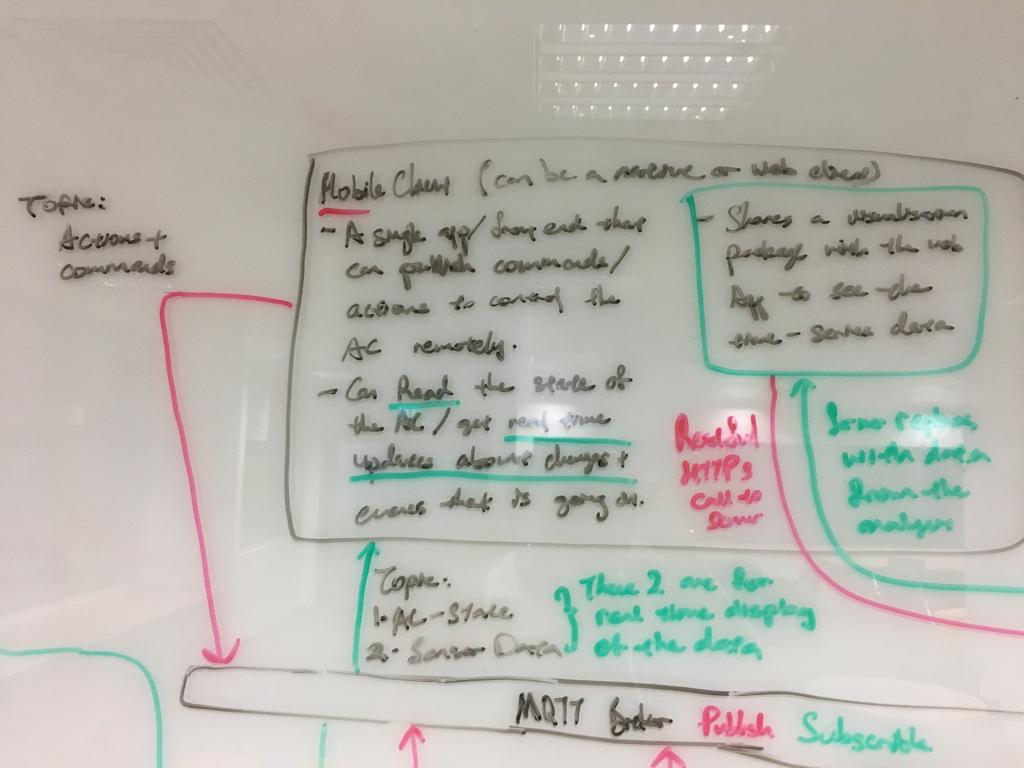 Topic:
Actions +
commands
Mobile Client (can be a native or web client)
- A single app/ front end that
can publish commands/
actions to control the
AC remotely.
- Can Read the state of
the AC/ get real time
updates about changes +
events that is going on.
- Shares a visualisation
package with the web
App to see the
time-series data
HTTPS
call to
Server
Server replies
with data
from the
analyser
Topic:
1. AC-State
2. Sensor Data
These 2 are for
real time display
of the data
MQTT Broker Publish Subscribe